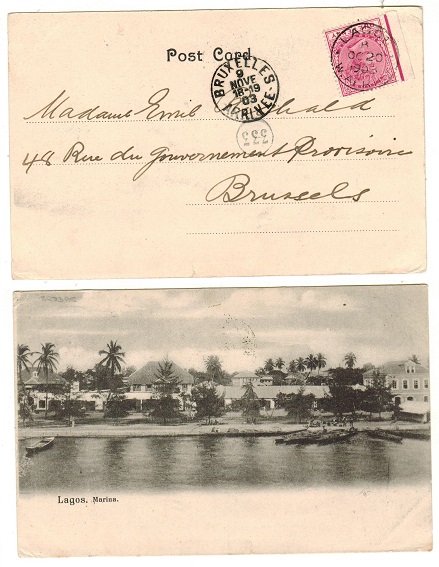 Post Card
LAGOS
OC 20
BRUXELLES
9
NOVE
18-19
03
ARRIVEE
333
Madame Emil
48 Rue du Gouvernement Provisoire
Brussels
Lagos. Marina.